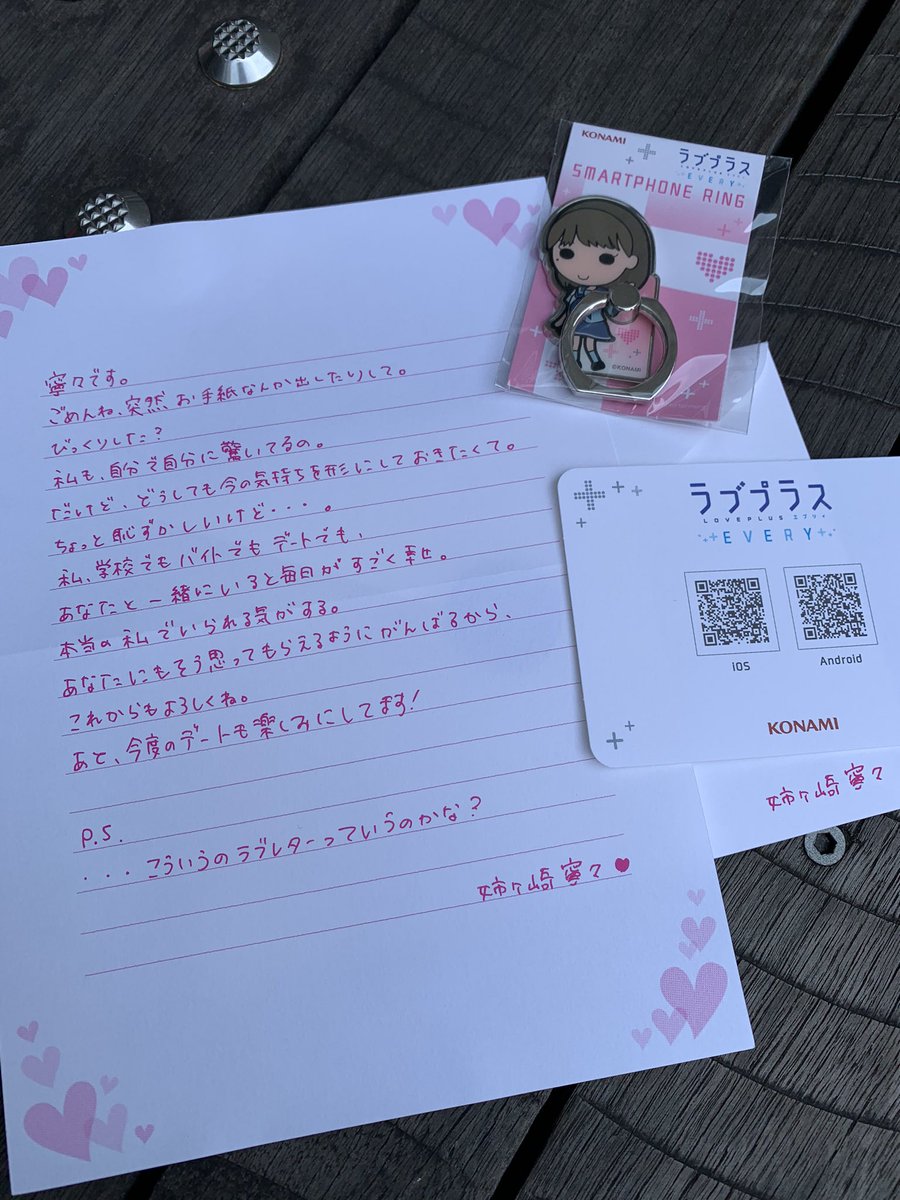 寧々です。
ごめんね、突然お手紙なんか出したりして。
びっくりした？
私も、自分で自分に驚いてるの。
だけど、どうしても今の気持ちを形にしておきたくて。
ちょっと恥ずかしいけど・・・。
私、学校でもバイトでもデートでも、
あなたと一緒にいると毎日がすごく幸せ。
本当の私でいられる気がする。
あなたにもそう思ってもらえるようにがんばるから、
これからもよろしくね。
あと、今度のデートも楽しみにしてます！
P.S.
・・・こういうのラブレターっていうのかな？
姉ヶ崎寧々
KONAMI
ラブプラス
EVERY
SMARTPHONE RING
©KONAMI
ラブプラス
LOVEPLUS エブリィ
EVERY
iOS
Android
KONAMI
姉ヶ崎寧々